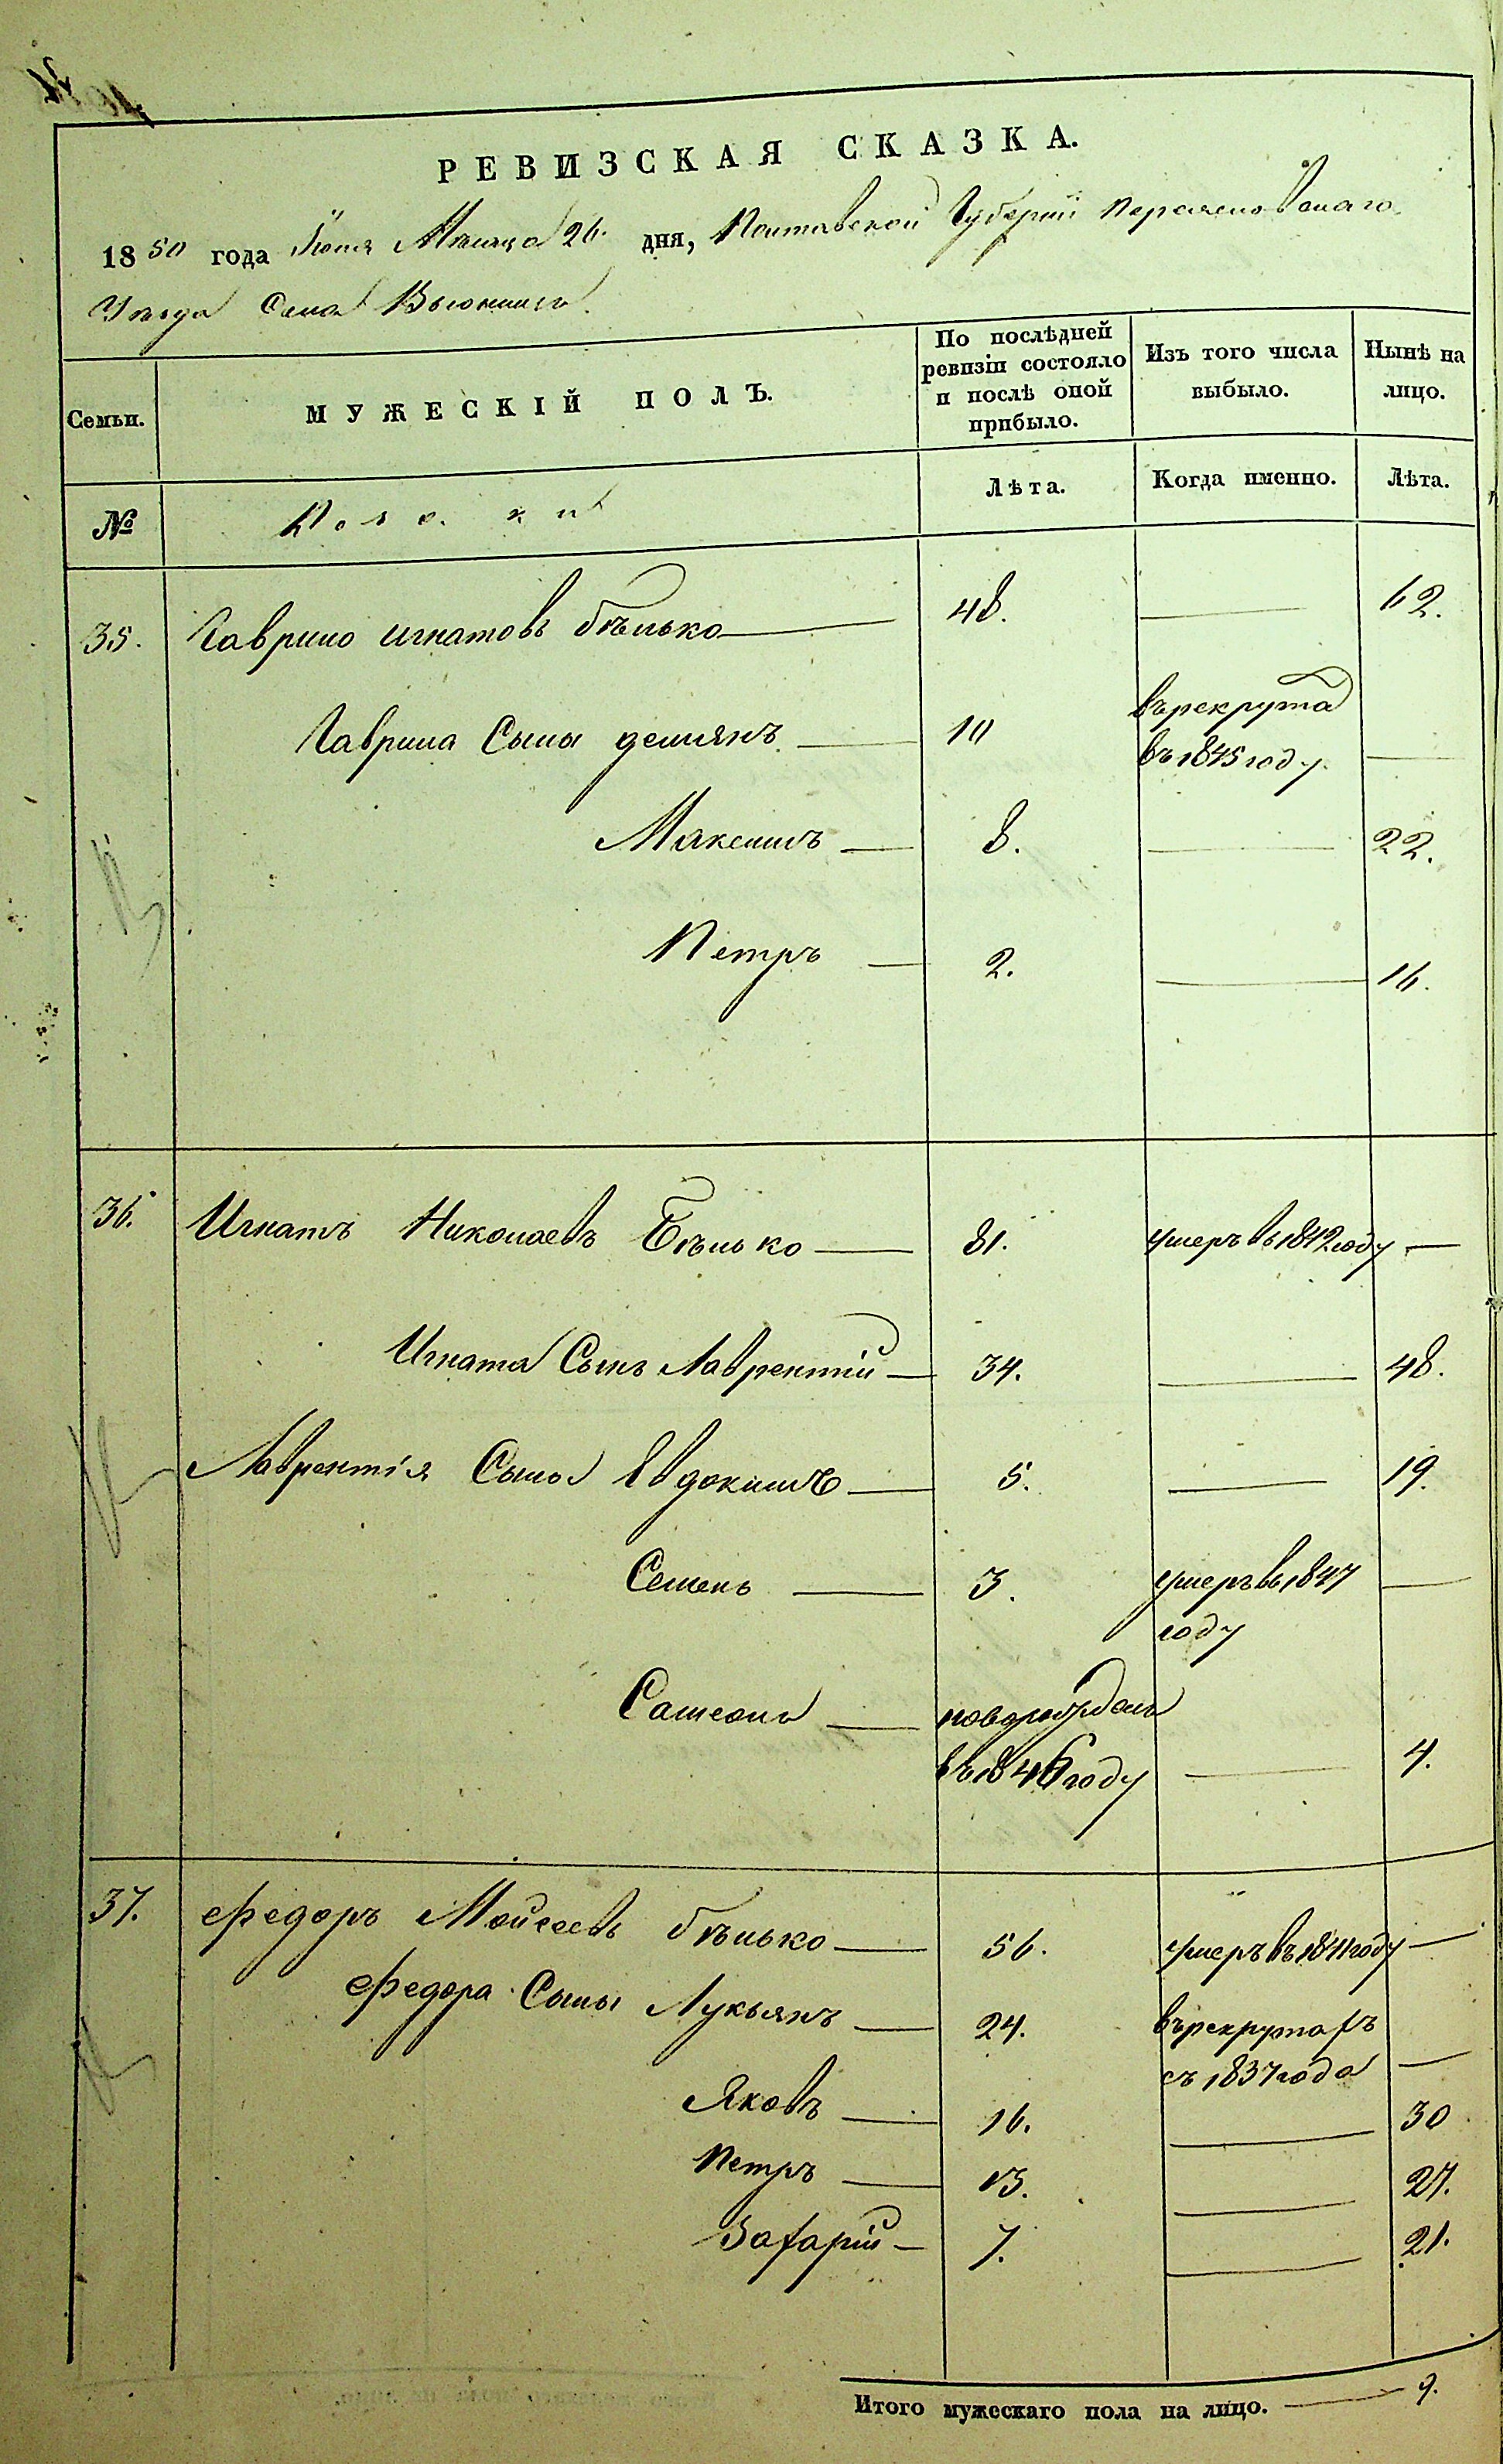 РЕВИЗСКАЯ СКАЗКА.
1850 года Июня Месяца 26. дня, Полтавской Губернии Переяславскаго
Уезда Села Вьюнища
Семьи.
МУЖЕСКІЙ ПОЛЪ.
По послѣдней ревизіи состояло и послѣ оной прибыло.
Изъ того числа выбыло.
Нынѣ на лицо.
№
Лѣта.
Когда именно.
Лѣта.
35. Гаврило Игнатовъ Бѣлько 48. 62.
Гаврила Сыны Демьянъ 10 въ рекрута
въ 1845 году
Максимъ 8. 22.
Петръ 2. 16.
36. Игнатъ Николаевъ Бѣлько 81. умеръ въ 1842 году
Игната Сынъ Лаврентій 34. 48.
Лаврентія Сыны Евдокимъ 5. 19.
Семенъ 3. умеръ въ 1847
году
Самсонъ новорожденъ
въ 1846 году 4.
37. Федоръ Мойсеевъ Бѣлько 56. умеръ въ 1841 году
Федора Сыны Лукьянъ 24. въ рекрутахъ
съ 1837 года
Яковъ 16. 30
Петръ 13. 27.
Захарій 7. 21.
Итого мужескаго пола на лицо. 9.